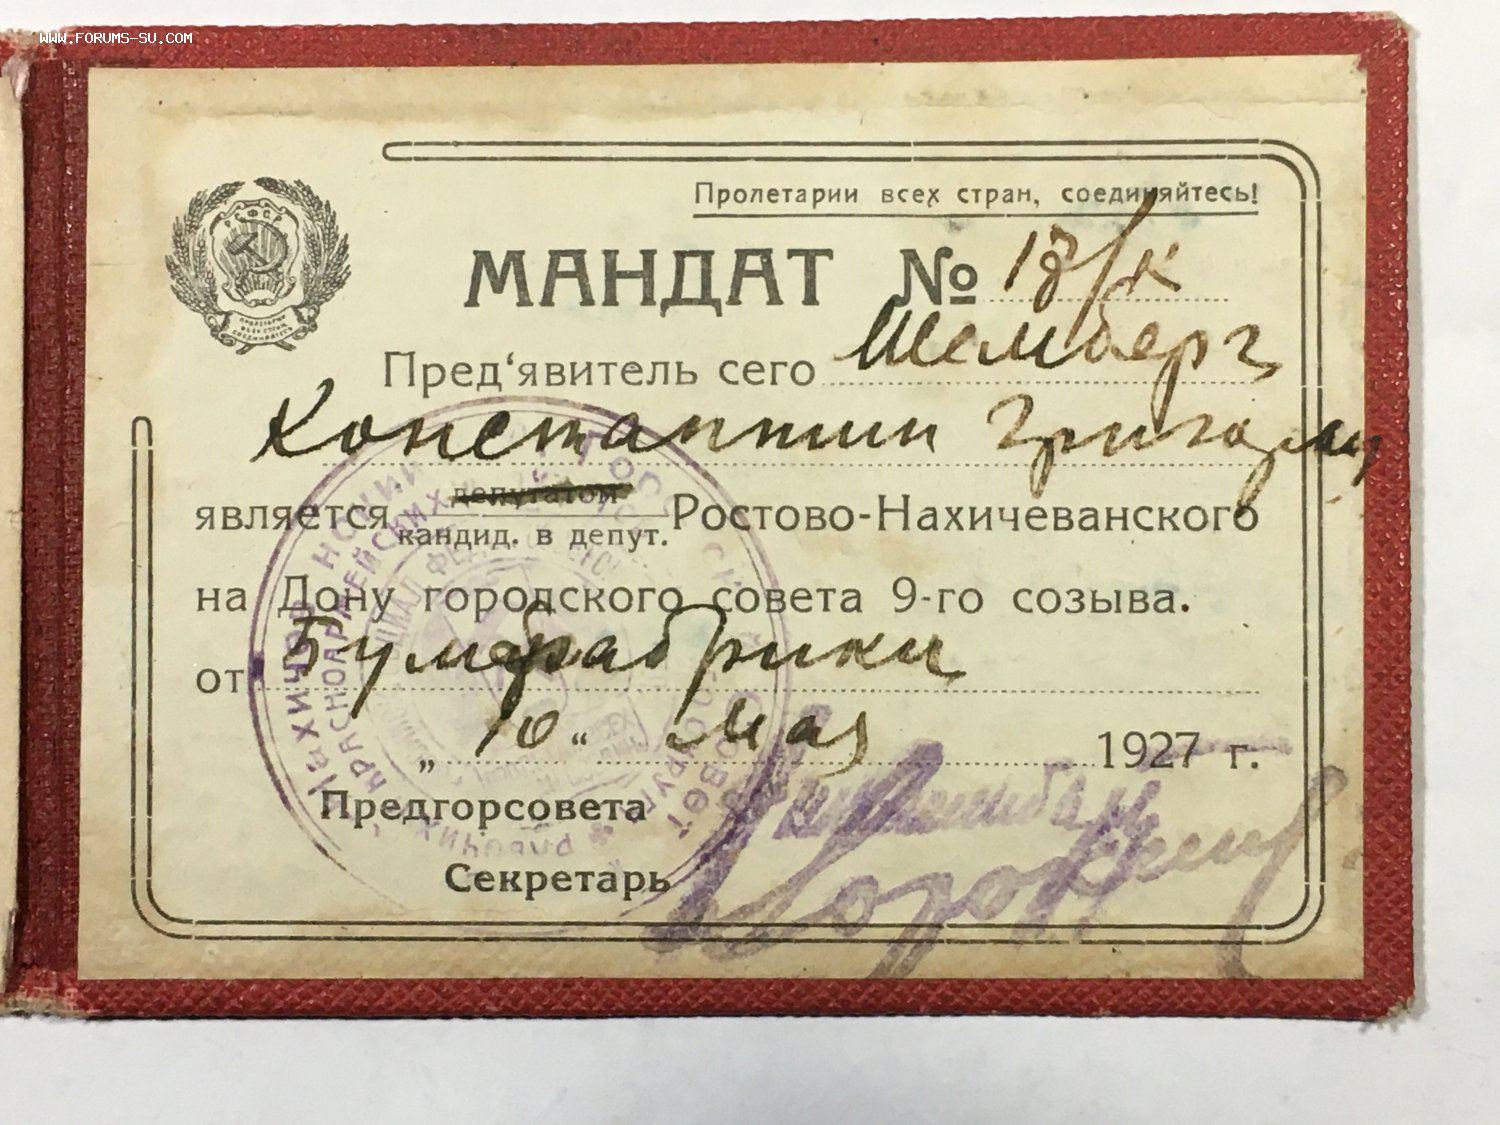 WWW.FORUMS-SU.COM
РСФСР
Пролетарии всех стран, соединяйтесь!
МАНДАТ № 18/к
Пред‘явитель сего Шемберг
Константин
является депутатом
кандид. в депут. Ростово-Нахичеванского
на Дону городского совета 9-го созыва.
от Бумфабрики
„ 10 “ Мая 1927 г.
Предгорсовета
Секретарь